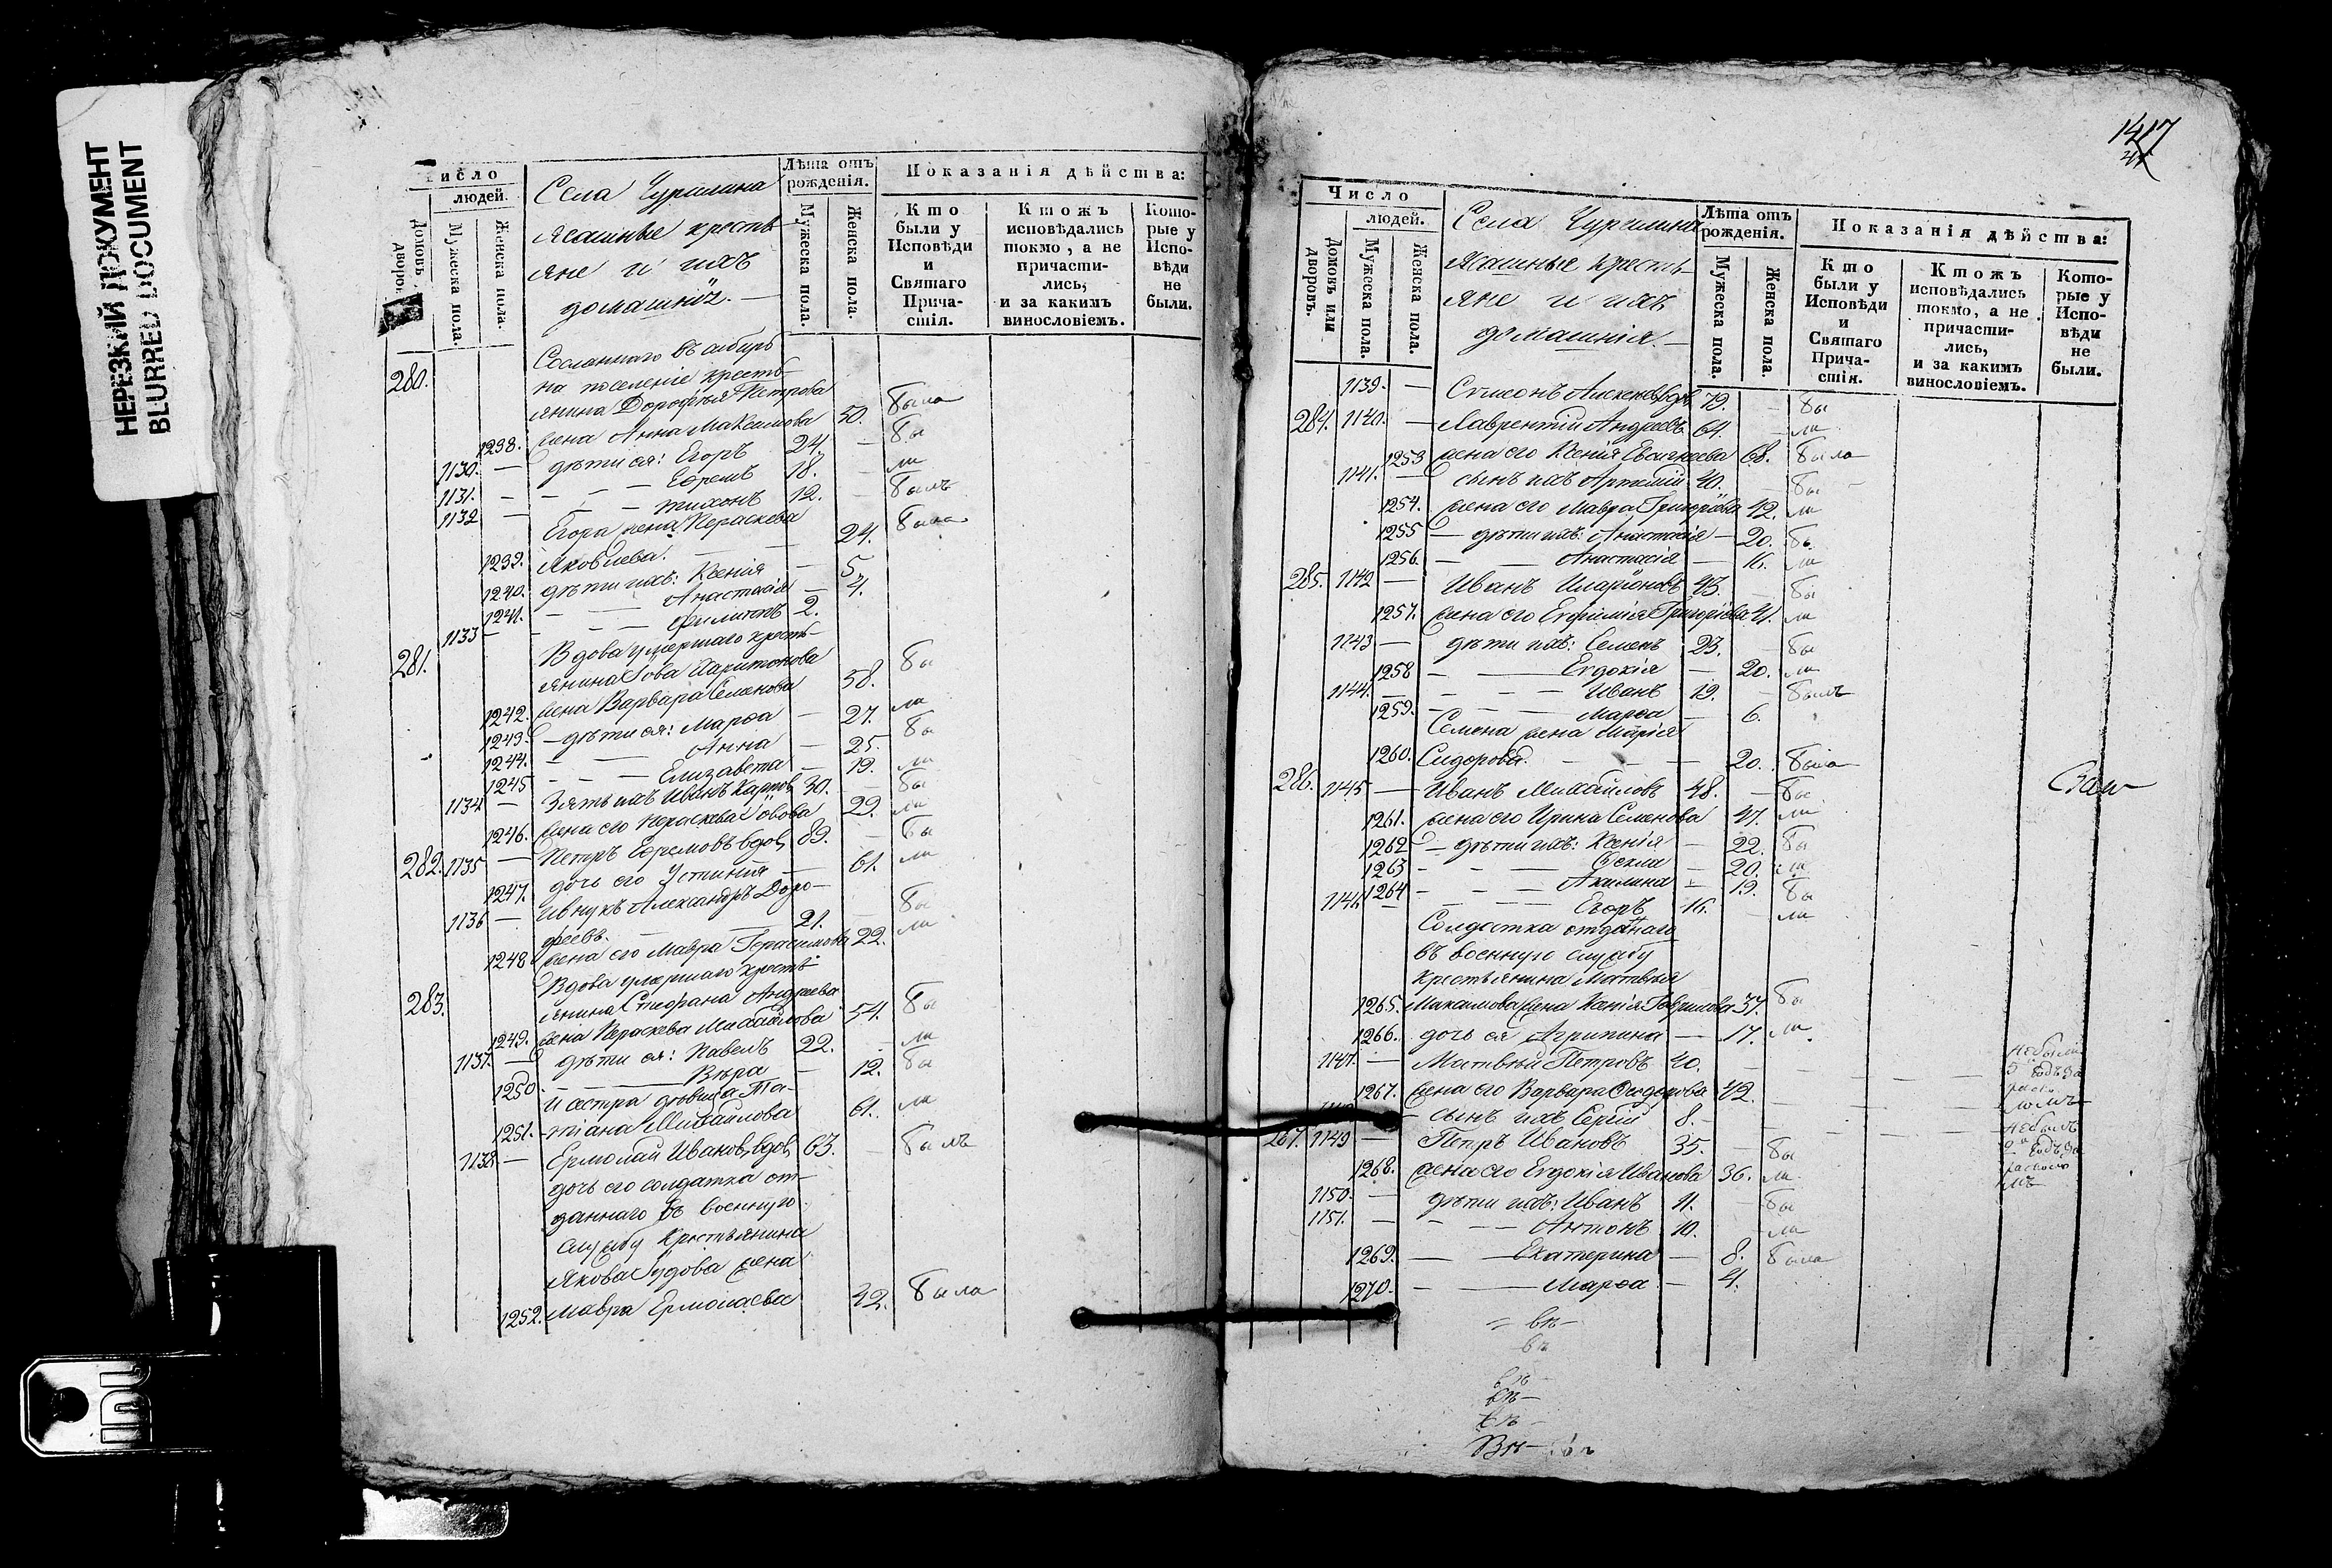 НЕРЕЗКИЙ ДОКУМЕНТ
BLURRED DOCUMENT
Число
людей.
Домовъ
дворовъ
Мужеска пола.
Женска пола.
Села Чурилина
Ясашные кресть-
яне и ихъ
домашнія.
Лѣта отъ
рожденія.
Мужеска пола.
Женска пола.
Показанія дѣйства:
Кто
были у
Исповѣди
и
Святаго
Прича-
стія.
Ктожъ
исповѣдались
токмо, а не
причасти-
лись,
и за какимъ
винословіемъ.
Кото-
рые у
Испо-
вѣди
не
были.
280. Сосланнаго въ сибирь
на поселеніе кресть-
янина Дорофея Петрова
1238. жена Анна Максимова 50. была
1130. — дѣти ея: Егоръ 24. — бы
1131. — — — Ефремъ 18. — ли
1132 — — — тихонъ 12. — былъ
Егора жена Пераскева
1239. Яковлева. — — 24. была
1240. дѣти ихъ: Ксенія — 5
1241. — — Анастасія — 4.
1133 — — — филипъ 2.
281. Вдова умершаго кресть-
янина Іова Харитонова
1242. жена Варвара Семенова 58. бы
1243. — дѣти ея: Марѳа — 27. ли
1244. — — Анна — 25. бы
1245 — — — Елизавета — 19. ли
1134 — Зять ихъ Иванъ Карпов. 30. — бы
1246. жена его Пераскева Іовова 29. ли
282. 1135 — Петръ Ефремовъ вдов. 89. — бы
1247. дочь его Устинія — 61. ли
1136 — И внукъ Александръ Доро-
феевъ. — — 21. — бы
1248 жена его Мавра Герасимова 22. ли
283. Вдова умершаго кресть-
янина Стефана Андреева
1249. жена Пераскева Михайлова 54. бы
1137. — дѣти ея: Павелъ 22. — ли
1250. — — Вѣра — 12. бы
И сестра дѣвица Та-
1251. тіана Михайлова 61. ли
1138. — Ермолай Иванов. вдов. 63. — былъ
дочь его солдатка от-
даннаго въ военную
службу Крестьянина
Якова жена
1252. Мавра Ермолаева 42. была
1417
Число
людей.
Домовъ или
дворовъ.
Мужеска пола.
Женска пола.
Села Чурилина
Ясашные Кресть-
яне и ихъ
домашнія.
Лѣта отъ
рожденія.
Мужеска пола.
Женска пола.
Показанія дѣйства:
Кто
были у
Исповѣди
и
Святаго
Прича-
стія.
Ктожъ
исповѣдались
токмо, а не
причасти-
лись,
и за какимъ
винословіемъ.
Кото-
рые у
Испо-
вѣди
не
были.
1139. — Симеонъ Алексѣев. вдов. 79. — бы
284. 1140. — Лаврентій Андреевъ 64. — ли
1253 жена его Ксенія Евсигнеева 68. была
1141. — сынъ ихъ Артемій 40. — бы
1254. жена его Мавра Григорьева 42. ли
1255 — дѣти ихъ: Анастасія — 20. бы
1256. — — Анастасія — 16. ли
285. 1142 — Иванъ Иларіоновъ 43. — бы
1257. жена его Евфимія Григорьева 41. ли
1143 — дѣти ихъ: Семенъ 23. — бы
1258 — — Евдокія — 20. ли
1144. — — — — Иванъ 19. — былъ
1259. — — — Марѳа — 6.
Семена жена Марія
1260. Сидорова. — — — 20. была
286. 1145 — — Иванъ Михайловъ 48. — бы
1261. жена его Ирина Семенова 47. ли
1262 — дѣти ихъ: Ксенія — 22. бы
1263 — — — Ѳекла — 20. ли
1264 — — — Акилина — 19. бы
1146. — — — Егоръ 16. — ли
Солдатка отданнаго
въ военную службу
Крестьянина Матвея
1265. Максимова жена Ксенія Гаврилова 37. бы
1266. дочь ея Агрипина — 17. ли
1147. — Матвѣй Петровъ 40. —
1267. жена его Варвара Сидорова 42. —
сынъ ихъ Сергій 8. —
287. 1149 — Петръ Ивановъ 35. — бы
1268. жена его Евдокія Иванова 36. ли
1150. — дѣти ихъ: Иванъ 11. — бы
1151. — — — Антонъ 10. — ли
1269. — — Екатерина — 8. была
1270. — — Марѳа — 4.